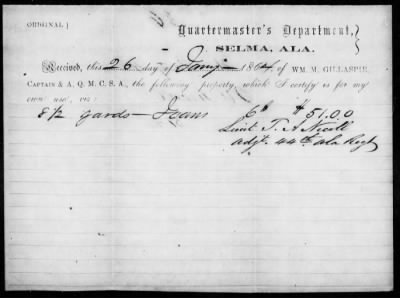 ORIGINAL}
Quartermaster's Department,}
SELMA, ALA.
Received, this 26 day of Jany 1864 of WM. M. GILLASPIE,
CAPTAIN & A. Q. M. C. S. A., the following property, which I certify is for my
own use, viz:
8 1/2 yards Jeans 6 $ 51.00
Lieut. T. A. Nicoll
Adjt. 44th Ala Regt